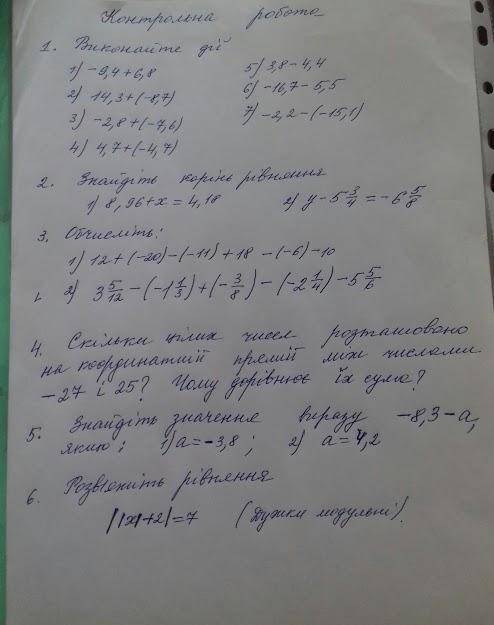 Контрольна робота
1. Виконайте дії
1) -9,4+6,8 5) 3,8-4,4
2) 14,3+(-8,7) 6) -16,7-5,5
3) -2,8+(-7,6) 7) -2,2-(-15,1)
4) 4,7+(-4,7)
2. Знайдіть корінь рівняння
1) 8,96+x=4,18 2) y-5 3/4=-6 5/8
3. Обчисліть:
1) 12+(-20)-(-11)+18-(-6)-10
2) 3 5/12-(-1 1/3)+(-3/8)-(-2 1/4)-5 5/6
4. Скільки цілих чисел розташовано
на координатній прямій між числами
-27 і 25? Чому дорівнює їх сума?
5. Знайдіть значення виразу -8,3-a,
якщо: 1) a=-3,8; 2) a=4,2
6. Розв'яжіть рівняння
||x|+2|=7 (Дужки модульні).